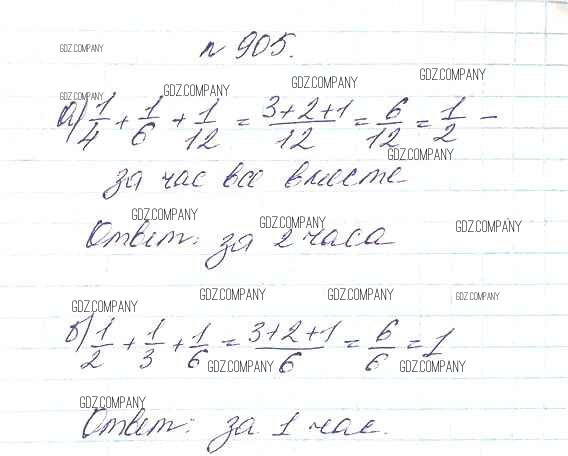 n 905.
GDZ.COMPANY
GDZ.COMPANY GDZ.COMPANY GDZ.COMPANY GDZ.COMPANY
а) 1/4 + 1/6 + 1/12 = 3+2+1/12 = 6/12 = 1/2 –
GDZ.COMPANY
за час все вместе
GDZ.COMPANY GDZ.COMPANY GDZ.COMPANY
Ответ: за 2 часа
GDZ.COMPANY GDZ.COMPANY GDZ.COMPANY GDZ.COMPANY
б) 1/2 + 1/3 + 1/6 = 3+2+1/6 = 6/6 = 1
GDZ.COMPANY GDZ.COMPANY
GDZ.COMPANY
Ответ: за 1 час.